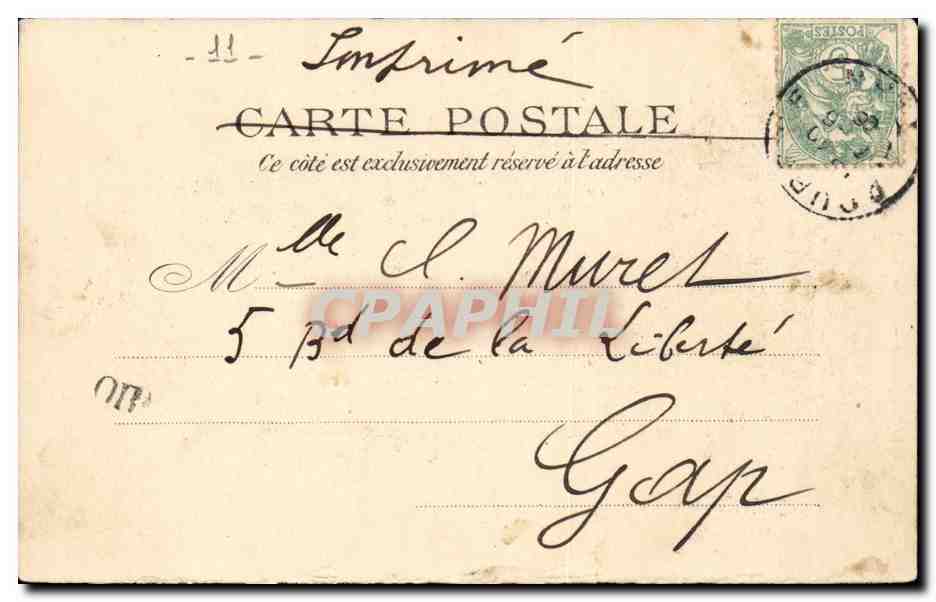 - 11 -
Imprimé
CARTE POSTALE
Ce côté est exclusivement réservé à l'adresse
POSTES
5
Mlle C. Muret
CPAPHIL
5 Bd de la Liberté
Gap